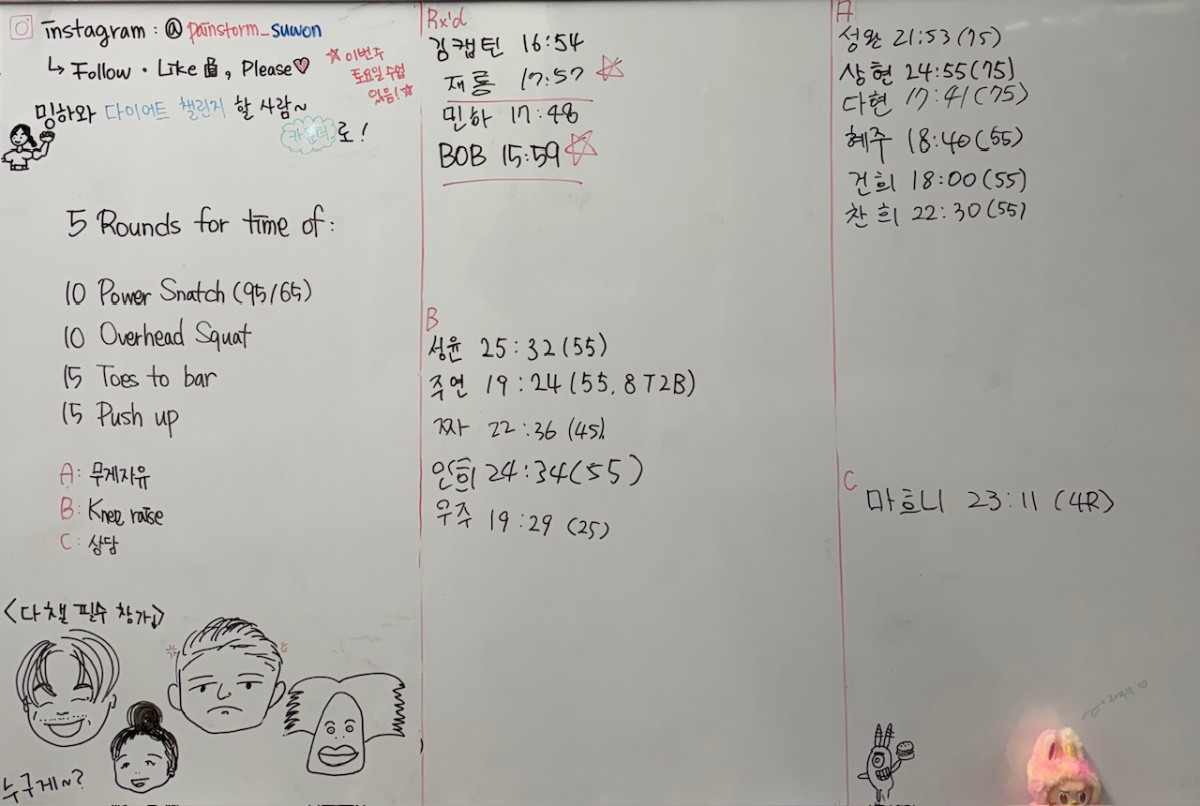 instagram : @ painstorm_suwon
↳ Follow · Like, Please♡
☆ 이번주
토요일 수업
있음! ☆
밍하와 다이어트 챌린지 할 사람~
카운터로!
5 Rounds for time of:
10 Power Snatch (95/65)
10 Overhead Squat
15 Toes to bar
15 Push up
A: 무게자유
B: Knee raise
C: 상담
<다챌 필수 참가↓>
누구게~?
Rx'd
김캡틴 16:54
재롱 17:57 ☆
민하 17:48
BOB 15:59 ☆
B
성윤 25:32 (55)
주연 19:24 (55, 8 T2B)
짜 22:36 (45)
인희 24:34 (55)
우주 19:29 (25)
A
성완 21:53 (75)
상현 24:55 (75)
다현 17:41 (75)
혜주 18:40 (55)
건희 18:00 (55)
찬희 22:30 (55)
C
마흐니 23:11 (4R)